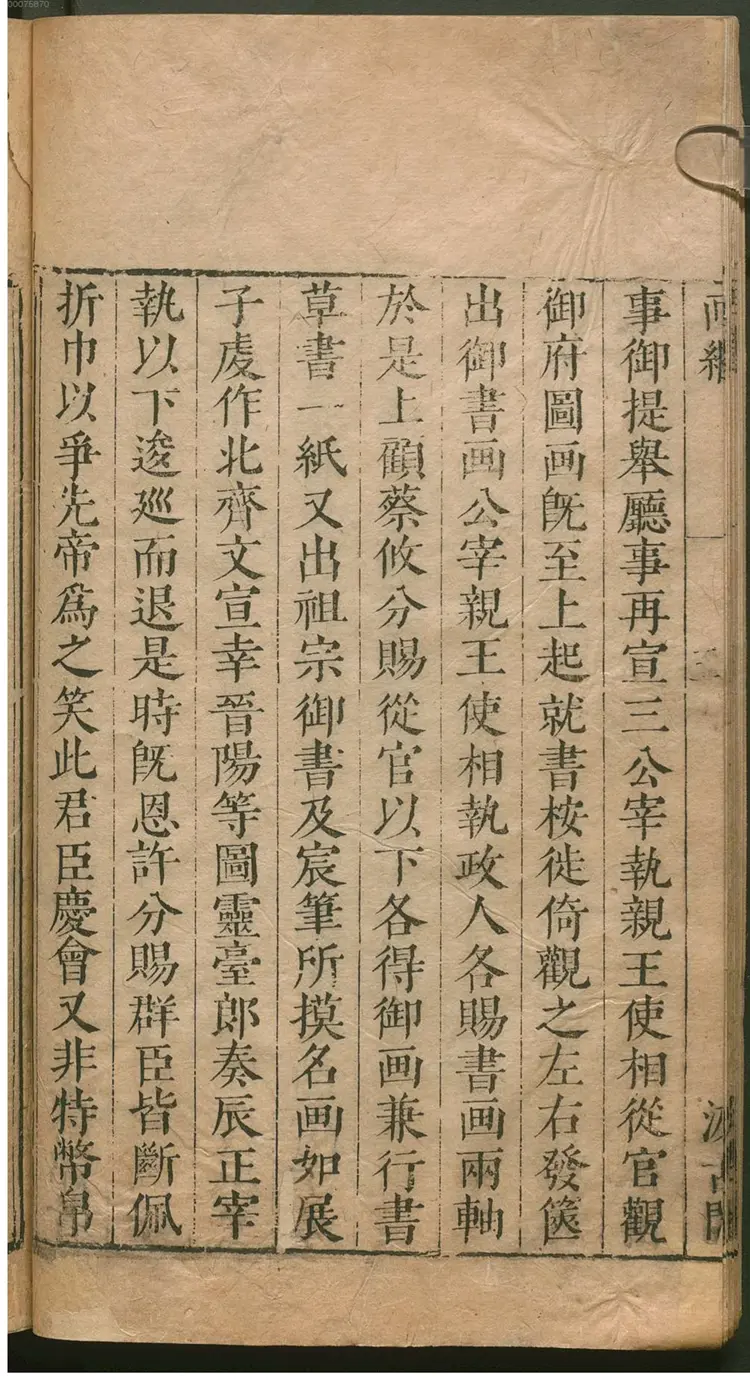 事御提舉廳事再宣三公宰執親王使相從官觀
御府圖画既至上起就書桉徙倚觀之左右發篋
出御書画公宰親王使相執政人各賜書画兩軸
於是上顧蔡攸分賜從官以下各得御画兼行書
草書一紙又出祖宗御書及宸筆所摸名画如展
子虔作北齊文宣幸晉陽等圖靈臺郎奏辰正宰
執以下逡廵而退是時既恩許分賜群臣皆斷佩
折巾以爭先帝爲之笑此君臣慶會又非特幣帛
00075870